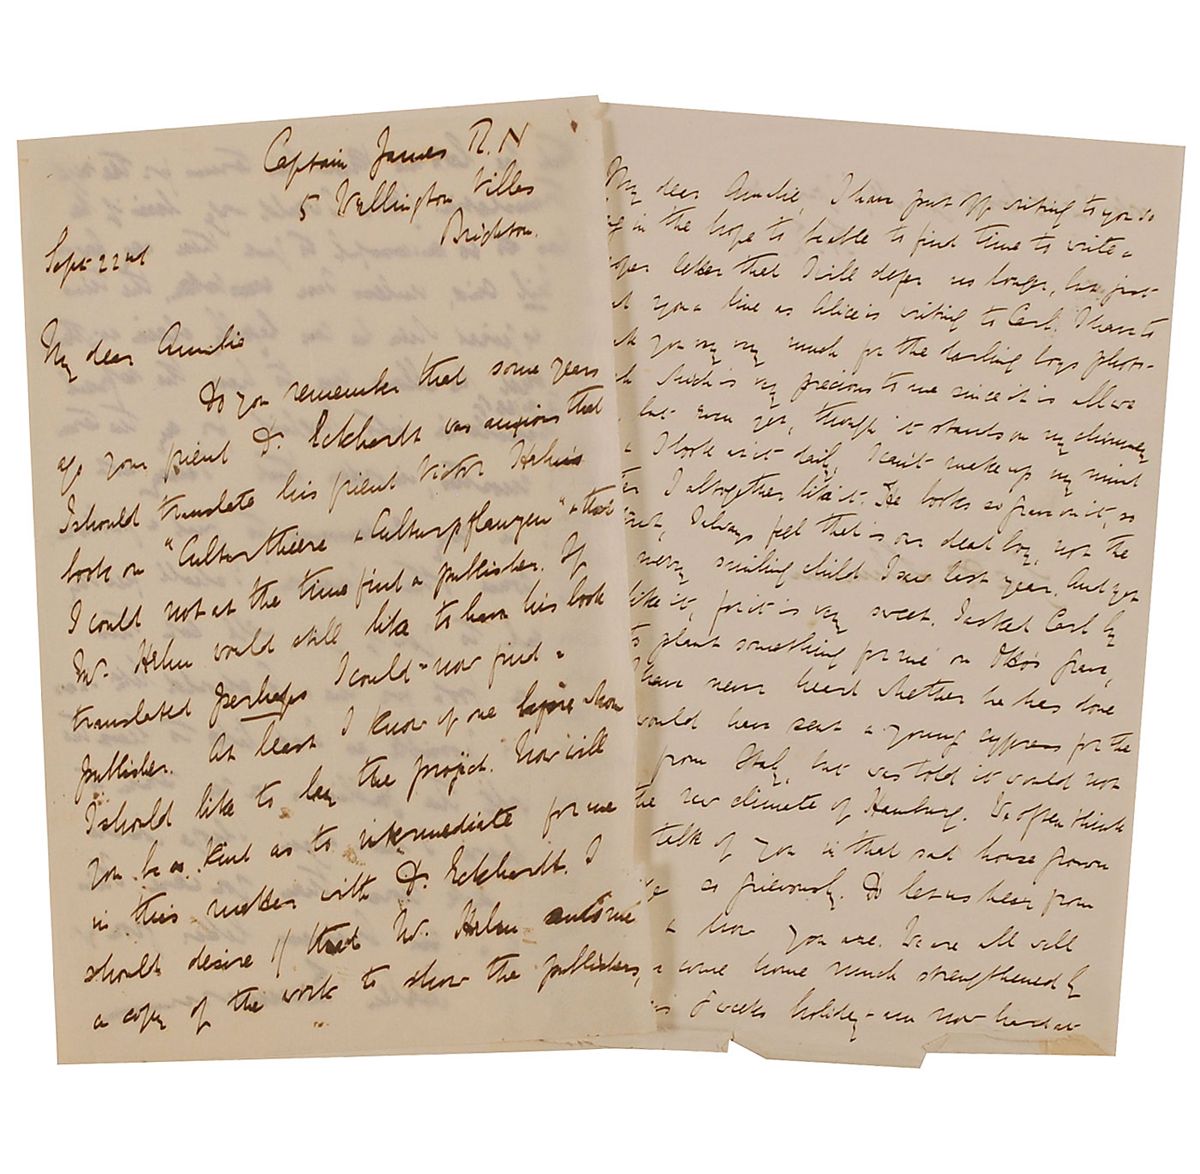 Captain James R.N
5 Wellington Villas
Brighton.
Sept 22nd
My dear Amelie
Do you remember that some years
ago your friend Dr. Eckhardt was anxious that
I should translate his friend Victor Hehn's
book on "Culturthiere & Culturpflanzen" & that
I could not at the time find a publisher. If
Mr. Hehn would still like to have his book
translated perhaps I could now find a
publisher. At least I know of one before whom
I should like to lay the project. Now will
you be as kind as to intermediate for me
in this matter with Dr. Eckhardt. I
should desire if that Mr. Hehn send me
a copy of the work to show the publishers,
My dear Amelie, I have put off writing to you so
in the hope to be able to find time to write a
letter that I will defer no longer, but just
you a line as Alice is writing to Carl. I have to
you very very much for the darling boys photo-
which is very precious to me since it is all we
but even yet, though it stands on my chimney
& I look at it daily, I can't make up my mind
I altogether like it. He looks so grave on it, so
I always feel that is our dead boy, not the
merry smiling child I saw last year. And yet
like it, for it is very sweet. I asked Carl by
to plant something for me on Otto's grave,
have never heard whether he has done
would have sent a young cypress for the
from Italy, but was told it would not
the raw climate of Hamburg. We often think
talk of you in that sad house grown
so grievously. Do let us hear from
how you are. We are all well
& come home much strengthened by
8 weeks holiday - am now hard at